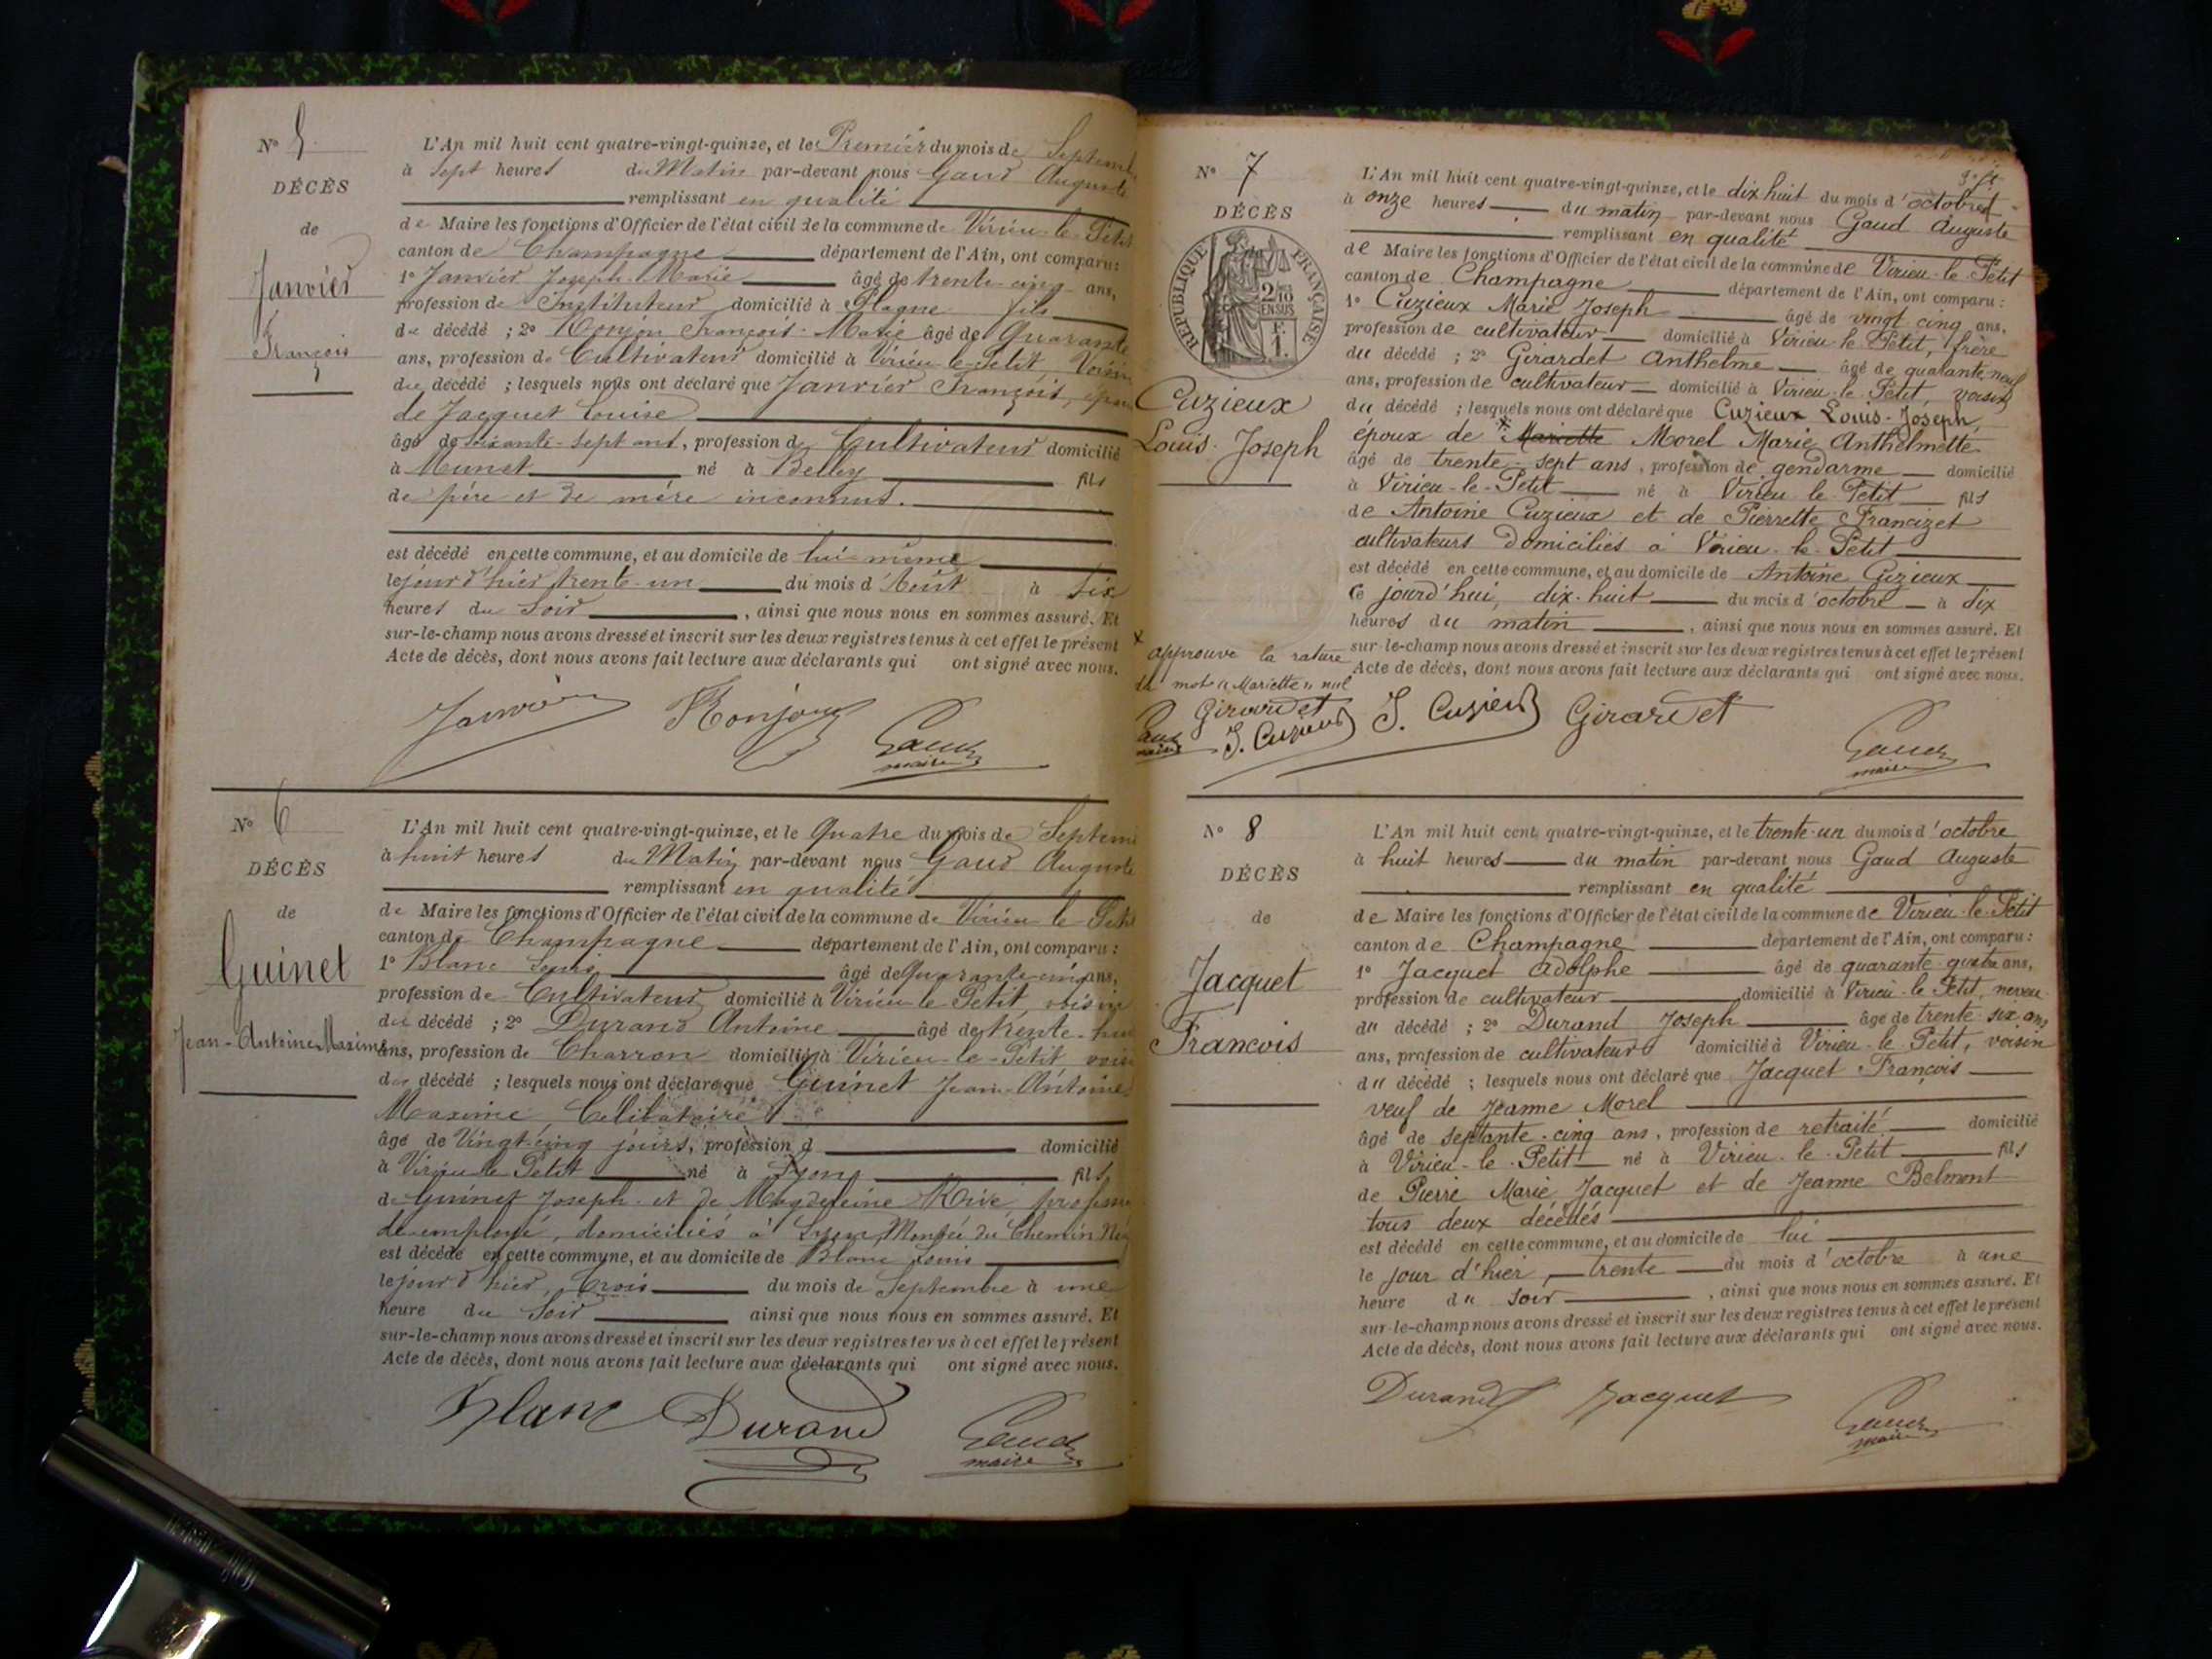 N° 5
DÉCÈS
de
Janvier
François
L'An mil huit cent quatre-vingt-quinze, et le Premier du mois de Septemb
à Sept heures du Matin par-devant nous Gaud Auguste
remplissant en qualité
de Maire les fonctions d'Officier de l'état civil de la commune de Virieu-le-Petit
canton de Champagne département de l'Ain, ont comparu :
1° Janvier Joseph-Marie âgé de trente-cinq ans,
profession de Instituteur domicilié à Plagne fils
du décédé ; 2° Bonjou François-Marie âgé de Quarante
ans, profession de Cultivateur domicilié à Virieu-le-Petit, Voisin
du décédé ; lesquels nous ont déclaré que Janvier François, époux
de Jacquet Louise
âgé de soixante-sept ans, profession de Cultivateur domicilié
à Munet né à Belley fils
de père et de mère inconnus.
est décédé en cette commune, et au domicile de lui-même
le jour d'hier trente-un du mois d'Août à Six
heures du Soir, ainsi que nous nous en sommes assuré. Et
sur-le-champ nous avons dressé et inscrit sur les deux registres tenus à cet effet le présent
Acte de décès, dont nous avons fait lecture aux déclarants qui ont signé avec nous.
Janvier Gaud
maire
N° 6
DÉCÈS
de
Guinet
Jean-Antoine Maxime
L'An mil huit cent quatre-vingt-quinze, et le Quatre du mois de Septem
à huit heures du Matin par-devant nous Gaud Auguste
remplissant en qualité
de Maire les fonctions d'Officier de l'état civil de la commune de Virieu le Petit
canton de Champagne département de l'Ain, ont comparu :
1° Blanc Louis âgé de Quarante-cinq ans,
profession de Cultivateur domicilié à Virieu le Petit, voisin
du décédé ; 2° Durand Antoine âgé de trente-huit
ans, profession de Charron domicilié à Virieu-le-Petit voisin
du décédé ; lesquels nous ont déclaré que Guinet Jean-Antoine
Maxime, Célibataire
âgé de Vingt-cinq jours, profession d domicilié
à Virieu le Petit né à Lyon fils
de Guinet Joseph et de Magdeleine Rive, profession
de employé, domiciliés à Lyon, Montée du Chemin Neuf
est décédé en cette commune, et au domicile de Blanc Louis
le jour d'hier, trois du mois de Septembre à une
heure du Soir ainsi que nous nous en sommes assuré. Et
sur-le-champ nous avons dressé et inscrit sur les deux registres tenus à cet effet le présent
Acte de décès, dont nous avons fait lecture aux déclarants qui ont signé avec nous.
Blanc Durand Gaud
maire
N° 7
DÉCÈS
RÉPUBLIQUE FRANÇAISE
2/10
EN SUS
Cuzieux
Louis-Joseph
L'An mil huit cent quatre-vingt-quinze, et le dix huit du mois d'octobre
à onze heures du matin par-devant nous Gaud Auguste
remplissant en qualité
de Maire les fonctions d'Officier de l'état civil de la commune de Virieu-le-Petit
canton de Champagne département de l'Ain, ont comparu :
1° Cuzieux Marie Joseph âgé de vingt cinq ans,
profession de cultivateur domicilié à Virieu-le-Petit, frère
du décédé ; 2° Girardet Anthelme âgé de quarante neuf
ans, profession de cultivateur domicilié à Virieu-le-Petit, voisin
du décédé ; lesquels nous ont déclaré que Cuzieux Louis-Joseph,
époux de x Mariette Morel Marie Anthelmette
âgé de trente-sept ans, profession de gendarme domicilié
à Virieu-le-Petit né à Virieu-le-Petit fils
de Antoine Cuzieux et de Pierrette Francizet
cultivateurs domiciliés à Virieu-le-Petit
est décédé en cette commune, et au domicile de Antoine Cuzieux
Ce jourd'hui, dix-huit du mois d'octobre à dix
heures du matin, ainsi que nous nous en sommes assuré. Et
sur-le-champ nous avons dressé et inscrit sur les deux registres tenus à cet effet le présent
Acte de décès, dont nous avons fait lecture aux déclarants qui ont signé avec nous.
x
approuve la rature
du mot "Mariette" nul
Girardet
Gaud
maire J. Cuzieux
J. Cuzieux Girardet Gaud
maire
N° 8
DÉCÈS
de
Jacquet
Francois
L'An mil huit cent quatre-vingt-quinze, et le trente-un du mois d'octobre
à huit heures du matin par-devant nous Gaud Auguste
remplissant en qualité
de Maire les fonctions d'Officier de l'état civil de la commune de Virieu-le-Petit
canton de Champagne département de l'Ain, ont comparu :
1° Jacquet Adolphe âgé de quarante-quatre ans,
profession de cultivateur domicilié à Virieu-le-Petit, neveu
du décédé ; 2° Durand Joseph âgé de trente-six ans
ans, profession de cultivateur domicilié à Virieu-le-Petit, voisin
du décédé ; lesquels nous ont déclaré que Jacquet François
veuf de Jeanne Morel
âgé de septante-cinq ans, profession de retraité domicilié
à Virieu-le-Petit né à Virieu-le-Petit fils
de Pierre Marie Jacquet et de Jeanne Belmont
tous deux décédés
est décédé en cette commune, et au domicile de lui
le jour d'hier, trente du mois d'octobre à une
heure du soir, ainsi que nous nous en sommes assuré. Et
sur-le-champ nous avons dressé et inscrit sur les deux registres tenus à cet effet le présent
Acte de décès, dont nous avons fait lecture aux déclarants qui ont signé avec nous.
Durand Jacquet Gaud
maire